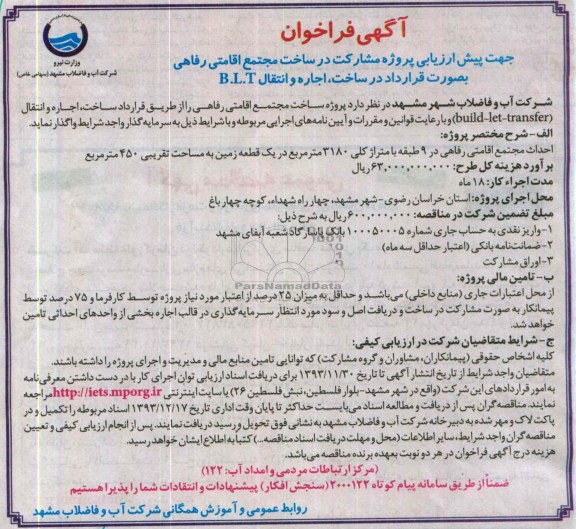 آگهی فراخوان
جهت پیش ارزیابی پروژه مشارکت در ساخت مجتمع اقامتی رفاهی
بصورت قرارداد در ساخت، اجاره و انتقال B.L.T
وزارت نیرو
شرکت آب و فاضلاب مشهد (سهامی خاص)
شرکت آب و فاضلاب شهر مشهد در نظر دارد پروژه ساخت مجتمع اقامتی رفاهی را از طریق قرارداد ساخت، اجاره و انتقال
(build-let-transfer) و با رعایت قوانین و مقررات و آیین نامه‌های اجرایی مربوطه و با شرایط ذیل به سرمایه گذار واجد شرایط واگذار نماید.
الف - شرح مختصر پروژه:
احداث مجتمع اقامتی رفاهی در ۹ طبقه با متراژ کلی ۳۱۸۰ مترمربع در یک قطعه زمین به مساحت تقریبی ۴۵۰ مترمربع
برآورد هزینه کل طرح: ۶۳,۰۰۰,۰۰۰,۰۰۰ ریال
مدت اجراء کار: ۱۸ ماه
محل اجرای پروژه: استان خراسان رضوی- شهر مشهد، چهار راه شهداء، کوچه چهار باغ
مبلغ تضمین شرکت در مناقصه: ۶۰۰,۰۰۰,۰۰۰ ریال به شرح ذیل:
۱- واریز نقدی به حساب جاری شماره ۱۰۰۰۵۰۰۰۵ بانک پاسارگاد شعبه آبفای مشهد
۲- ضمانت‌نامه بانکی (اعتبار حداقل سه ماه)
۳- اوراق مشارکت
ParsNamadData
ب- تامین مالی پروژه:
از محل اعتبارات جاری (منابع داخلی) می‌باشد و حداقل به میزان ۲۵ درصد از اعتبار مورد نیاز پروژه توسط کارفرما و ۷۵ درصد توسط
پیمانکار به صورت مشارکت در ساخت و دریافت اصل و سود مورد انتظار سرمایه گذاری در قالب اجاره بخشی از واحدهای احداثی تامین
خواهد شد.
ج- شرایط متقاضیان شرکت در ارزیابی کیفی:
کلیه اشخاص حقوقی (پیمانکاران، مشاوران و گروه مشارکت) که توانایی تامین منابع مالی و مدیریت و اجرای پروژه را داشته باشند.
متقاضیان واجد شرایط از تاریخ انتشار آگهی تا تاریخ ۱۳۹۳/۱۱/۳۰ برای دریافت اسناد ارزیابی توان اجرای کار با در دست داشتن معرفی‌نامه
به امور قراردادهای این شرکت (واقع در شهر مشهد- بلوار فلسطین، نبش فلسطین ۲۶) یا سایت اینترنتی http://iets.mporg.ir مراجعه
نمایند. مناقصه گران پس از دریافت و مطالعه اسناد می‌بایست حداکثر تا پایان وقت اداری تاریخ ۱۳۹۳/۱۲/۱۷ اسناد مربوطه را تکمیل و در
پاکت لاک و مهر شده به دبیر خانه شرکت آب و فاضلاب مشهد به نشانی فوق تحویل و رسید دریافت نمایند. پس از انجام ارزیابی کیفی و تعیین
مناقصه گران واجد شرایط، سایر اطلاعات (محل و مهلت دریافت اسناد مناقصه...) کتبا به اطلاع ایشان خواهد رسید.
هزینه درج آگهی فراخوان در هر دو نوبت به عهده برنده مناقصه می‌باشد.
(مرکز ارتباطات مردمی و امداد آب: ۱۲۲)
ضمناً از طریق سامانه پیام کوتاه ۲۰۰۰۱۲۲ (سنجش افکار) پیشنهادات و انتقادات شما را پذیرا هستیم
روابط عمومی و آموزش همگانی شرکت آب و فاضلاب مشهد